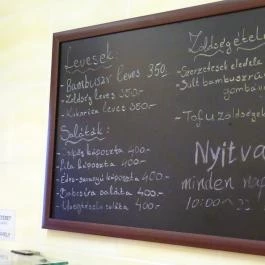 Levesek:
- Bambusz leves 350.-
- Zöldség leves 350.-
- Kukorica leves 350.-
Saláták:
káposzta 400.-
- Lila káposzta 400.-
- Édes-savanyú káposzta 400.-
saláta 400.-
saláta 400.-
Zöldségétel
- Szerzetesek eledele
- Sült bambuszrü
gomba
- Tofu zöldségek
Nyitva
minden nap
10:00